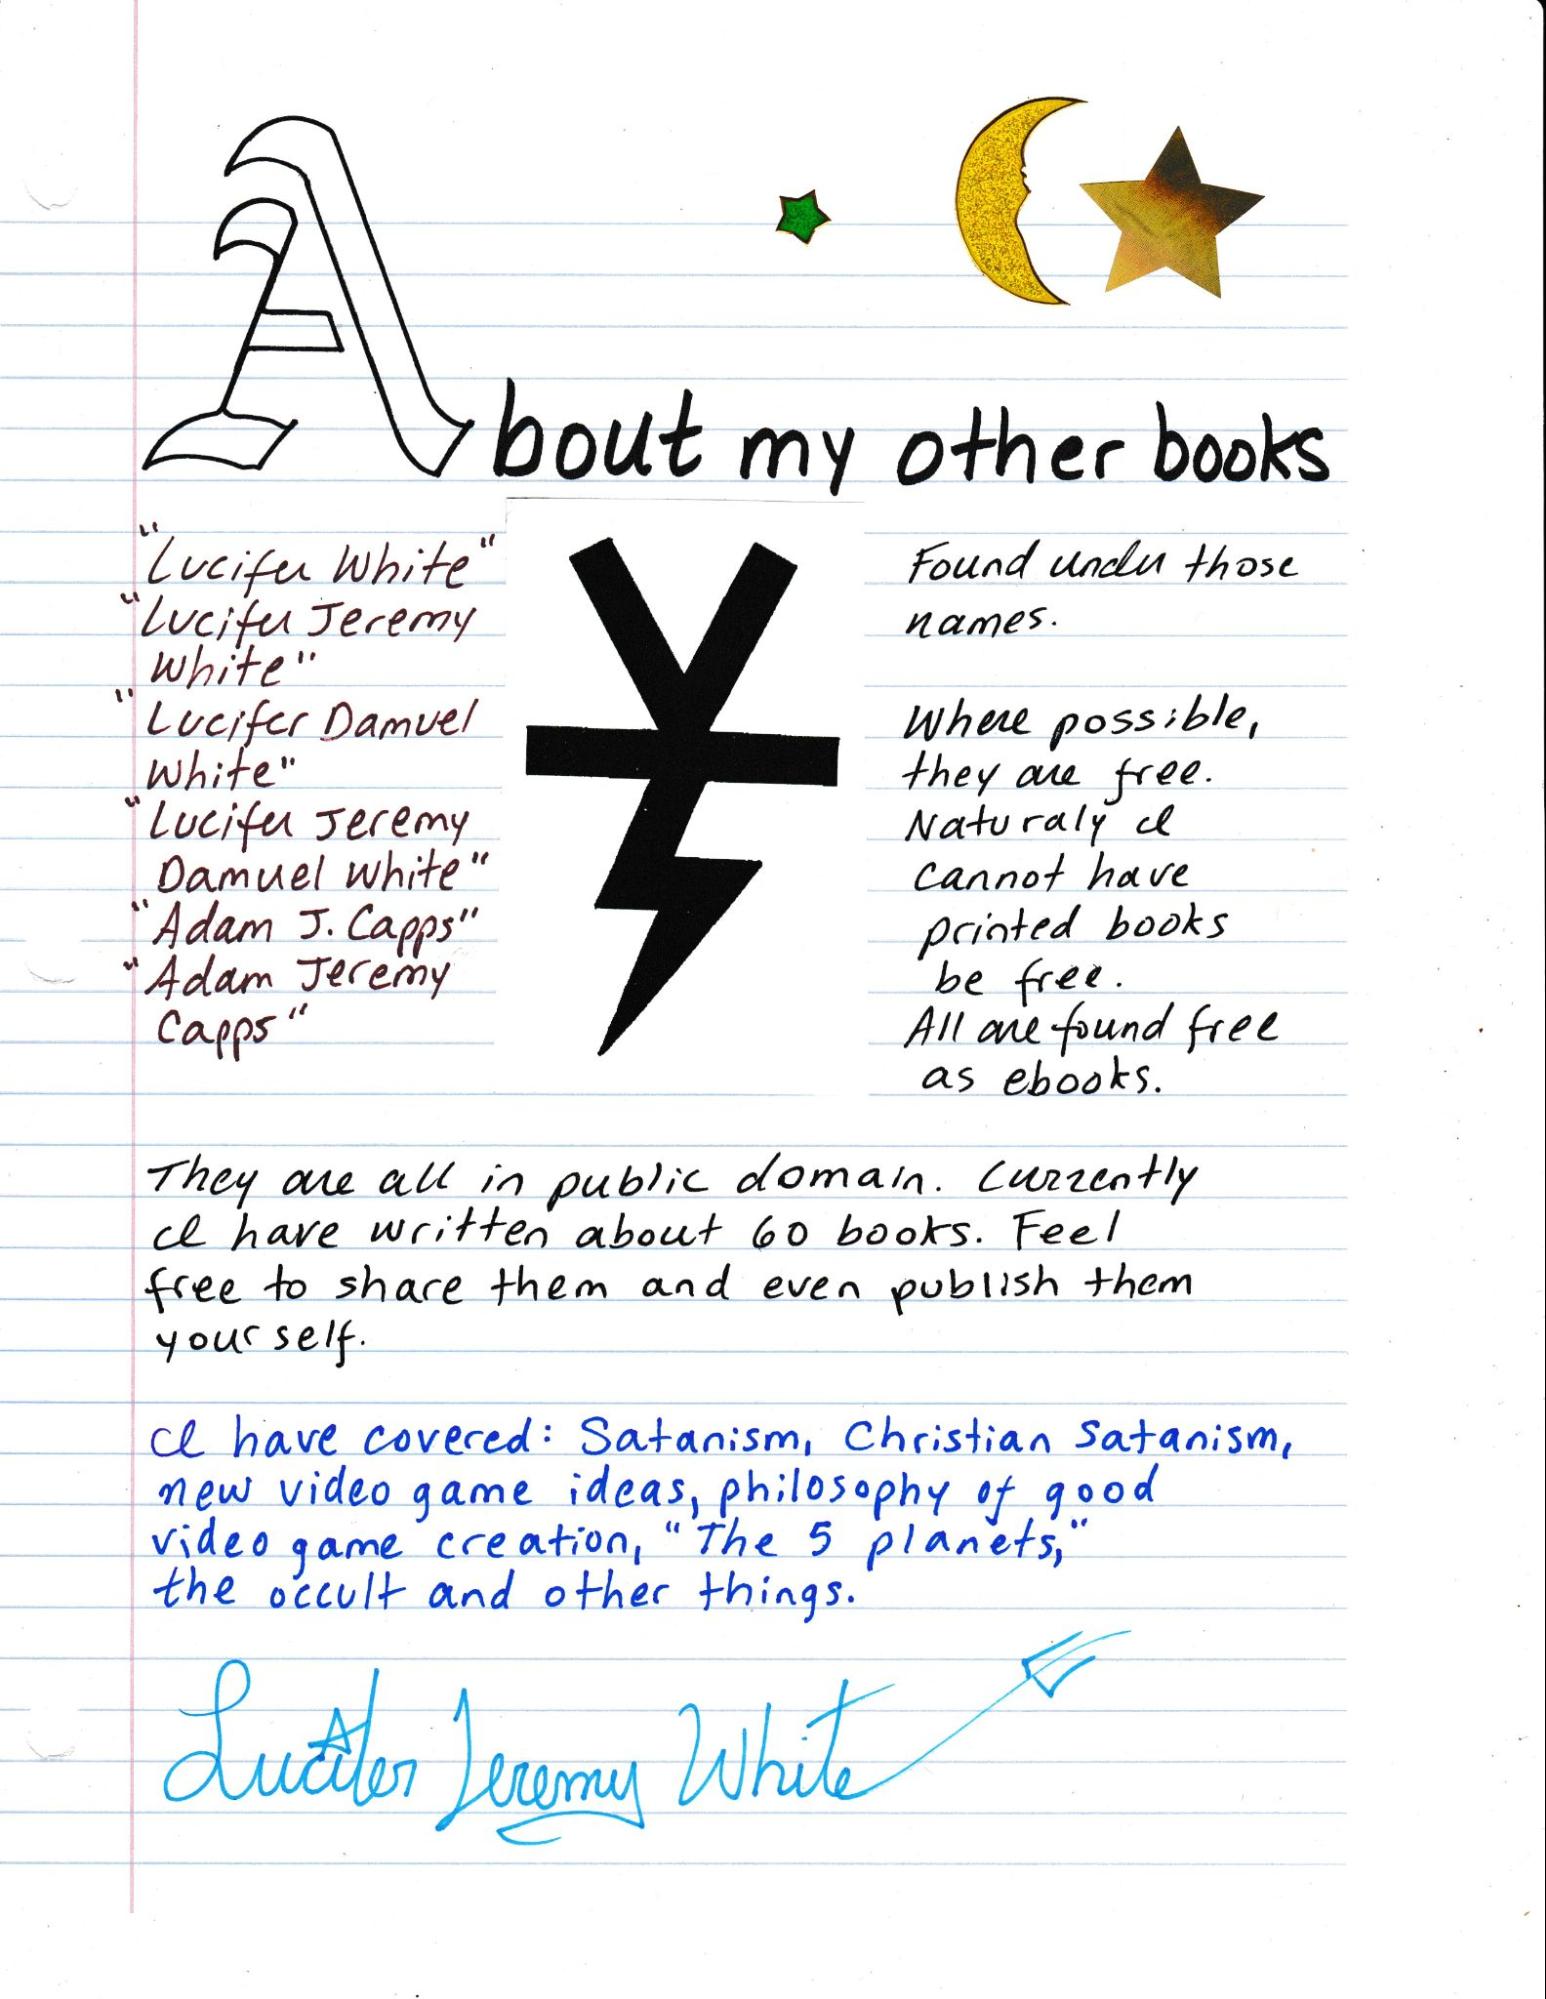 About my other books
"Lucifer White"
"Lucifer Jeremy
White"
"Lucifer Damuel
White"
"Lucifer Jeremy
Damuel White"
"Adam J. Capps"
"Adam Jeremy
Capps"
Found under those
names.
Where possible,
they are free.
Naturaly I
cannot have
printed books
be free.
All are found free
as ebooks.
They are all in public domain. Currently
I have written about 60 books. Feel
free to share them and even publish them
yourself.
I have covered: Satanism, Christian Satanism,
new video game ideas, philosophy of good
video game creation, "The 5 planets,"
the occult and other things.
Lucifer Jeremy White